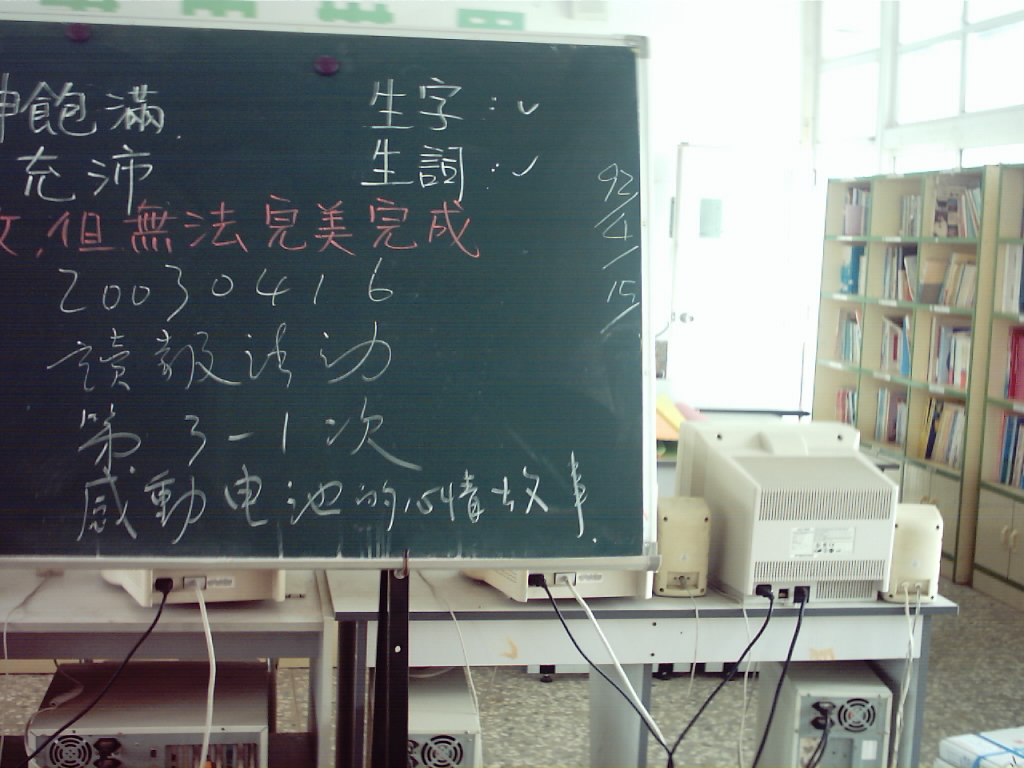 飽滿 生字:✓
充沛 生詞:✓
92/4/15
,但無法完美完成
20030416
讀報活动
第3-1次
感動电池的心情故事.